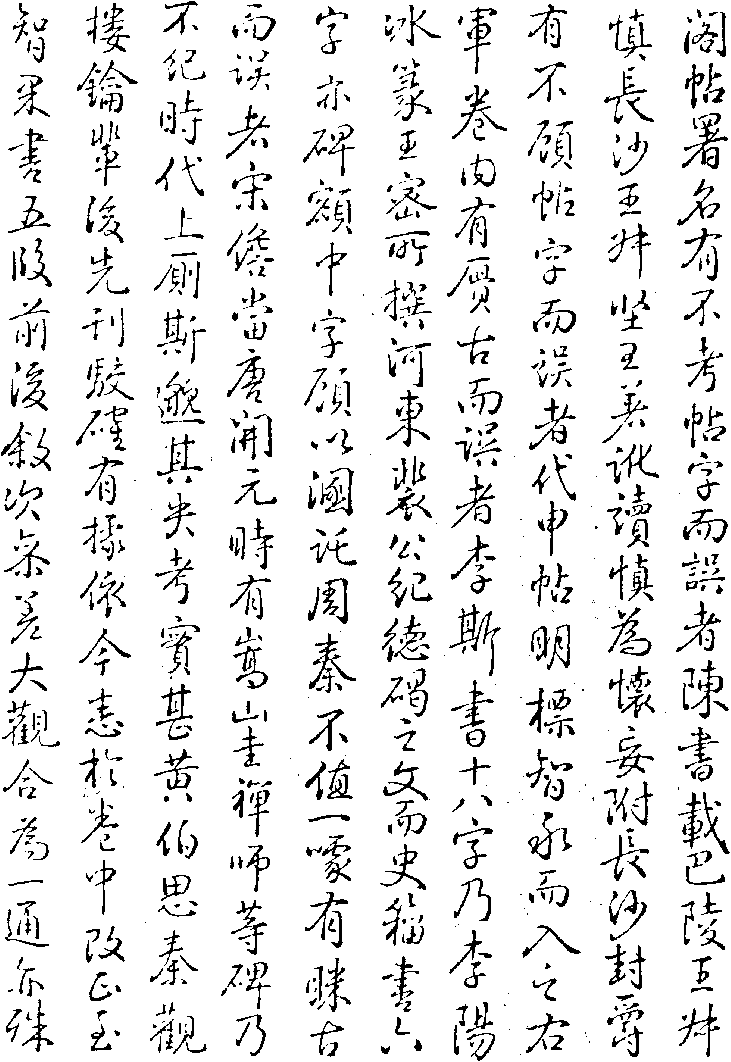 閣帖署名有不考帖字而誤者陳書載巴陵王叔
慎長沙王叔堅王著訛讀慎為懷妄附長沙封爵
有不顧帖字而誤者代申帖明標智永而入之右
軍卷內有贗古而誤者李斯書十八字乃李陽
冰篆王密所撰河東裴公紀德碣之文而史籀書六
字亦碑額中字顧以溷託周秦不值一噱有眯古
而誤者宋儋當唐開元時有嵩山圭禪師等碑乃
不紀時代上厠斯邈其失考實甚黃伯思秦觀
樓鑰輩後先刊駁確有據依今悉於卷中改正至
智果書五段前後敘次參差大觀合為一通亦殊